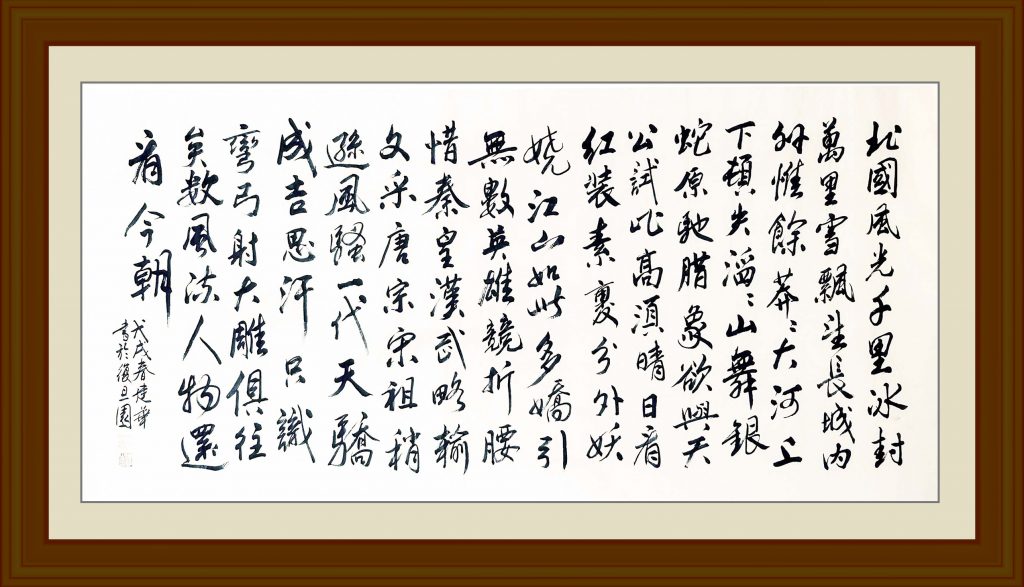 北國風光千里冰封
萬里雪飄望長城内
外惟餘莽〻大河上
下頓失滔〻山舞銀
蛇原馳腊象欲與天
公試比高須晴日看
红装素裹分外妖
娆江山如此多嬌引
無數英雄競折腰
惜秦皇漢武略輸
文采唐宗宋祖稍
遜風騷一代天驕
成吉思汗只識
彎弓射大雕俱往
矣數風流人物還
看今朝
戊戌春建華
書於復旦園